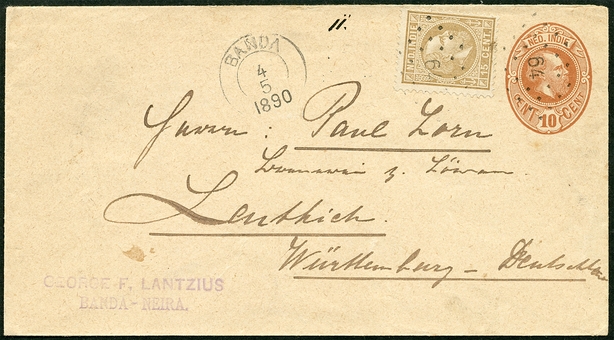 ii.
BANDA
4
5
1890
NED. INDIE
15 CENT.
6
NED. INDIE
64
CENT 10 CENT
Herrn: Paul Zorn
z. Löwen
Leutkich.
Württemburg – Deutschlan
GEORGE F. LANTZIUS
BANDA-NEIRA.